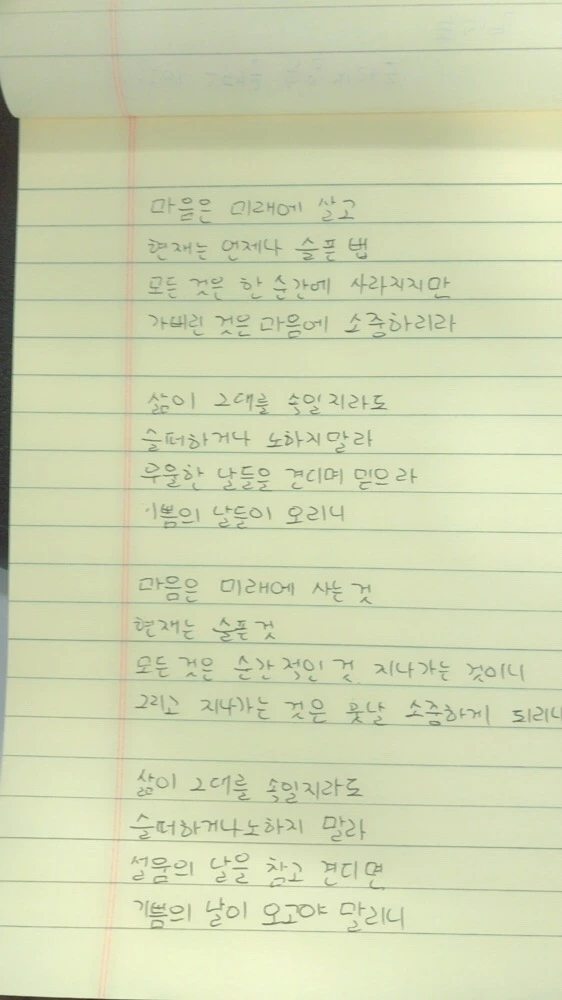 마음은 미래에 살고
현재는 언제나 슬픈 법
모든 것은 한 순간에 사라지지만
가버린 것은 마음에 소중하리라
삶이 그대를 속일지라도
슬퍼하거나 노하지말라
우울한 날들을 견디며 믿으라
기쁨의 날들이 오리니
마음은 미래에 사는 것
현재는 슬픈 것
모든 것은 순간적인 것 지나가는 것이니
그리고 지나가는 것은 훗날 소중하게 되리니
삶이 그대를 속일지라도
슬퍼하거나노하지 말라
설움의 날을 참고 견디면
기쁨의 날이 오고야 말리니